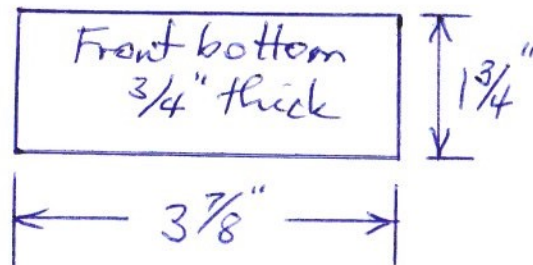 Front bottom
3/4" thick
1 3/4"
3 7/8"